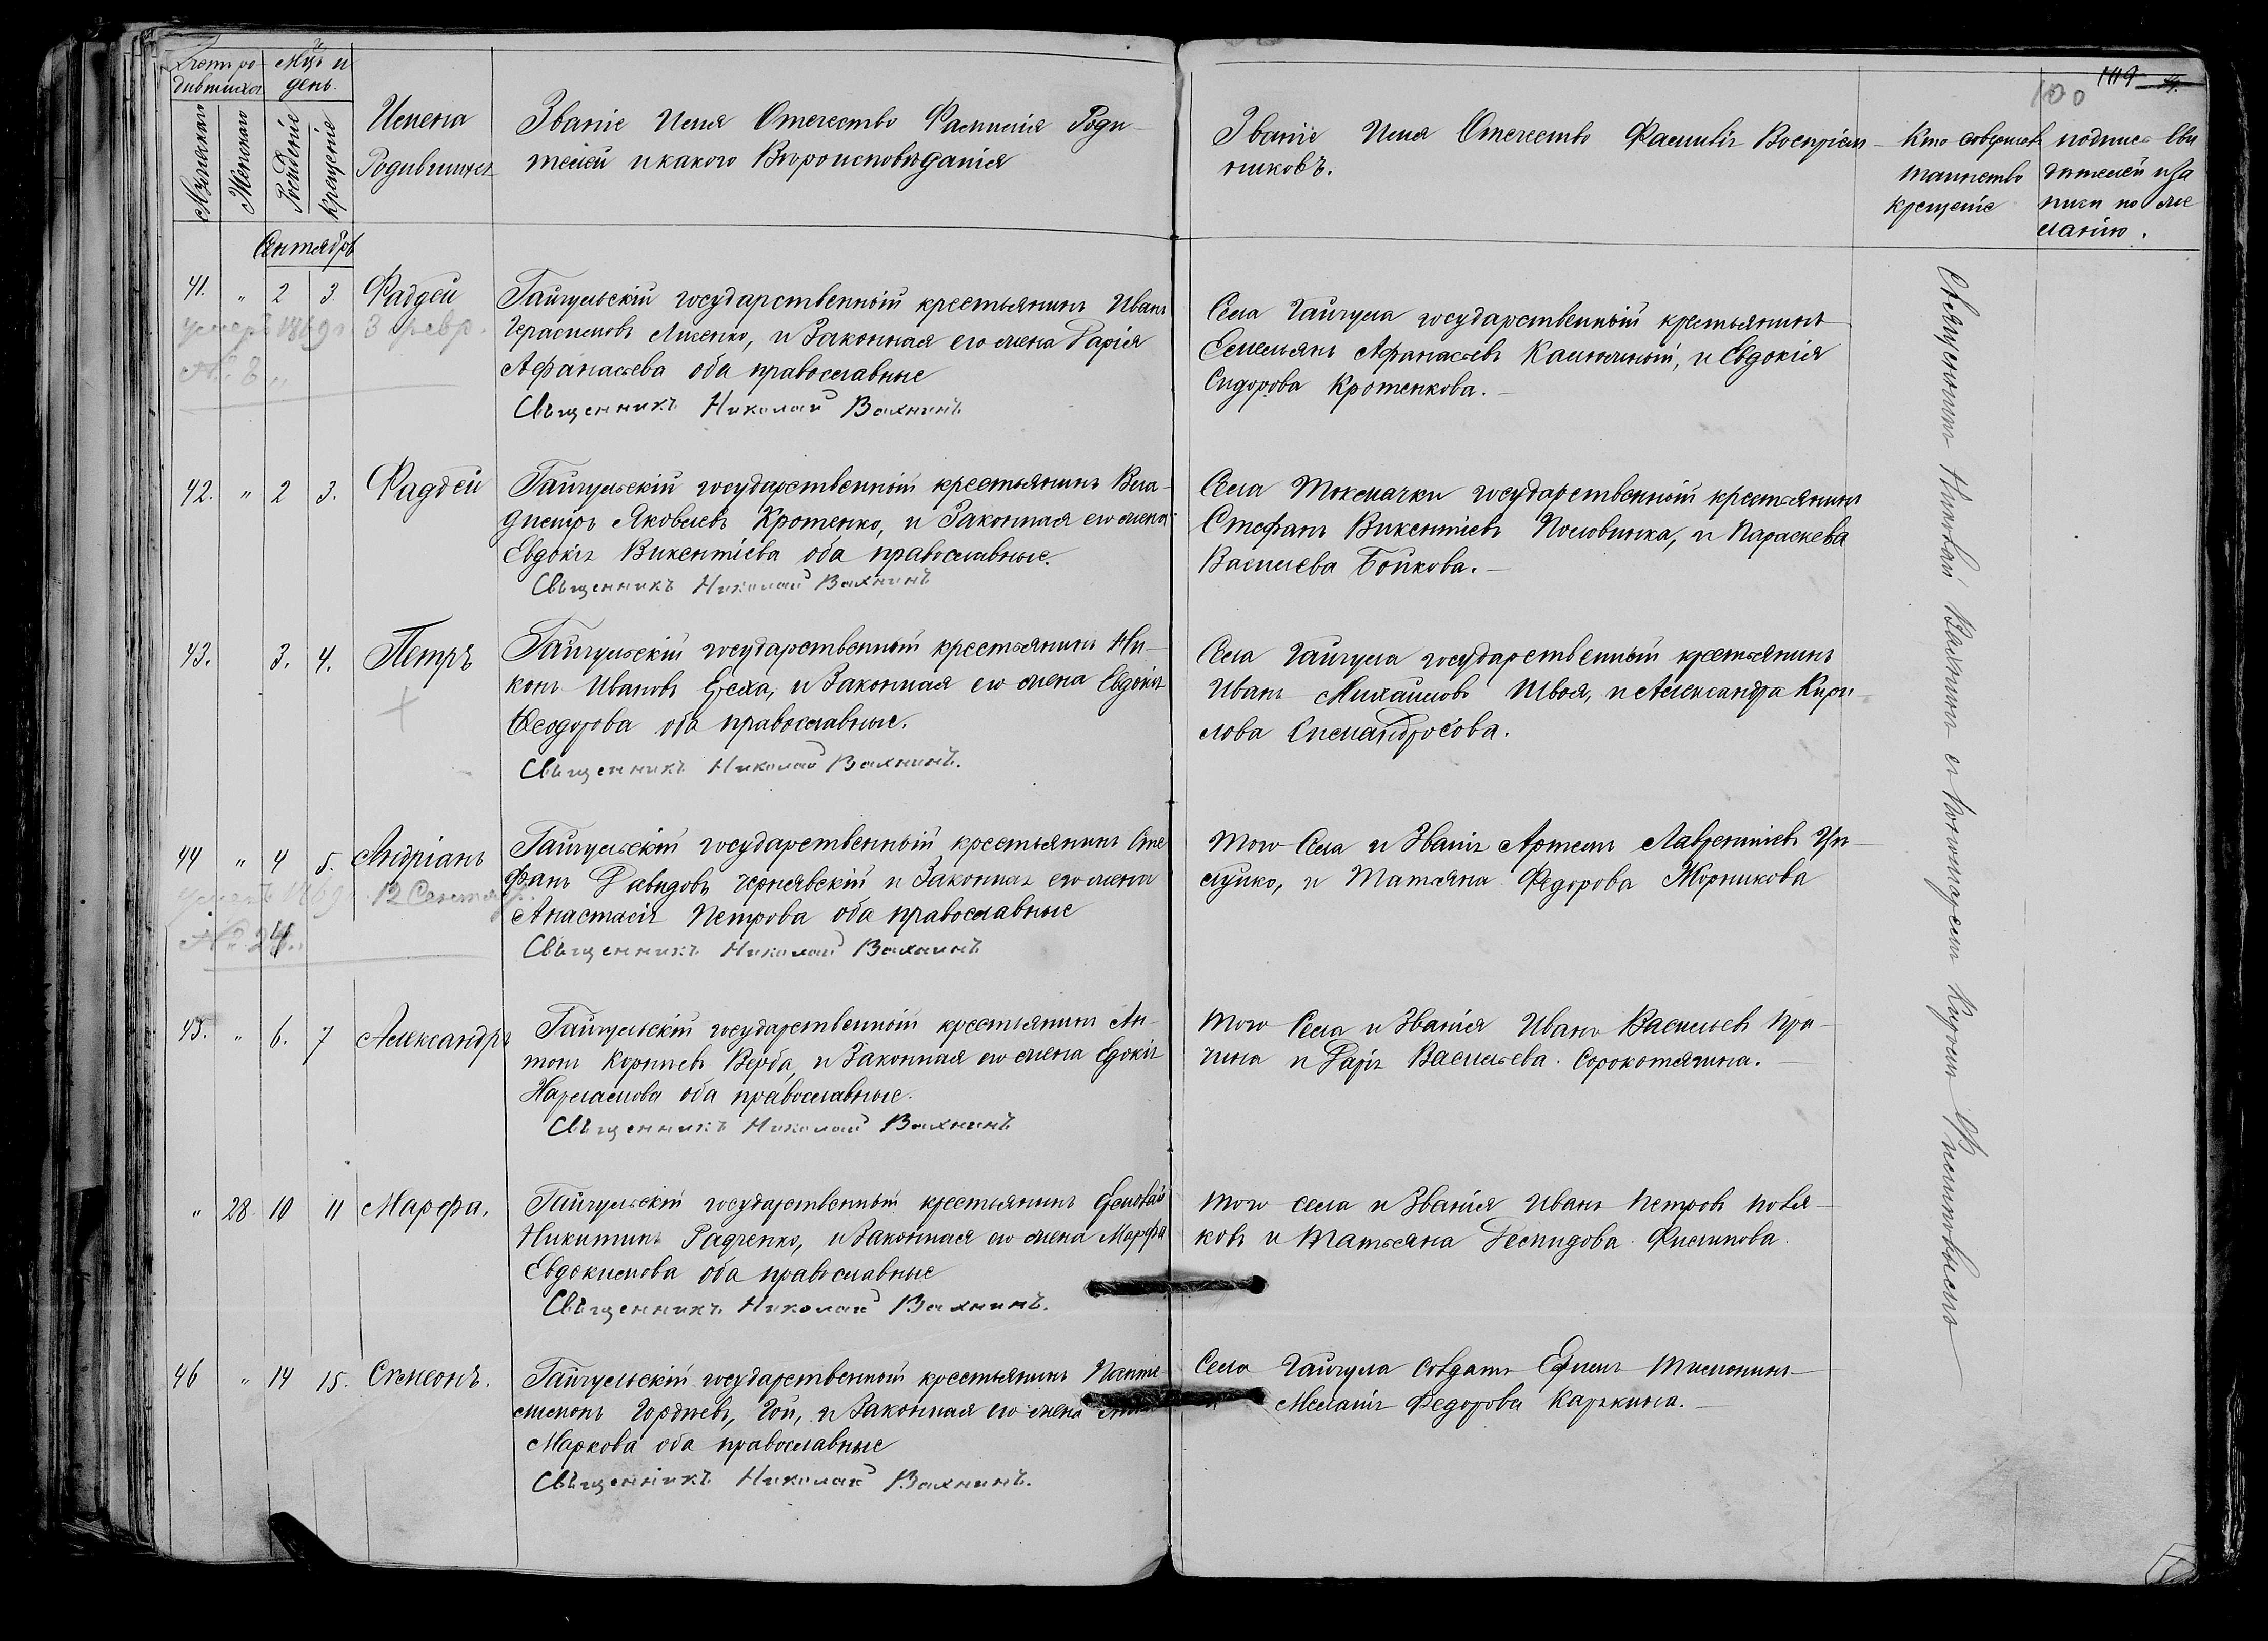 Счетъ ро-
дившихся
Мѣсъ и
день.
Мужескаго
Женскаго
Рожденіе
Крещеніе
Имена
Родившихся
Званіе Имя Отечество Фамилія Роди-
телей и какого Вѣроисповѣданія
Званіе Имя Отечество Фамилія Воспріем-
никовъ.
Кто совершалъ
таинство
крещеніе
подпись сви
дителей иза
писи по же
ланію.
100
119
Сентябрь
41. " 2 3. Фаддей
умеръ 1869 г. 3 февр.
№ 8
Гайчульскій государственный крестьянинъ Иванъ
Герасимовъ Лисенко, и Законная его жена Дарія
Афанасьева оба православные
Священникъ Николай Вахнинъ
Села Гайчула государственный крестьянинъ
Емельянъ Афанасьевъ и Евдокія
Сидорова Кротенкова.-
42. " 2 3. Фаддей
Гайчульскій государственный крестьянинъ Вла-
димиръ Яковлевъ Кротенко, и Законная его жена
Евдокія Викентіева оба православные.
Священникъ Николай Вахнинъ
Села Токмачки государственный крестьянинъ
Стефанъ Викентіевъ Половинка, и Параскева
Васильева Бойкова.-
43. 3. 4. Петръ
Гайчульскій государственный крестьянинъ Ни-
конъ Ивановъ и Законная его жена Евдокія
Феодорова оба православные.
Священникъ Николай Вахнинъ.
Села Гайчула государственный крестьянинъ
Иванъ Михайловъ Швоя, и Александра Кири-
лова
44 " 4 5. Андріанъ
умеръ 1869 г. 12 Сентяб.
№ 24.
Гайчульскій государственный крестьянинъ Сте
фанъ Давидовъ Чернявскій и Законная его жена
Анастасія Петрова оба православные
Священникъ Николай Вахнинъ
того Села и Званія Артемъ Лаврентіевъ
и Татьяна Федорова Жорникова
45. " 6. 7 Александръ
Гайчульскій государственный крестьянинъ Ан-
тонъ Корніевъ Верба, и Законная его жена Едокія
оба православные.
Священникъ Николай Вахнинъ
того Села и Званія Иванъ Васильевъ При-
чина и Дарія Васильева. Сорокотягина.
" 28. 10 11 Марфа.
Гайчульскій государственный крестьянинъ
Никитинъ Радченко, и Законная его жена Марфа
Евдокимова оба православные
Священникъ Николай Вахнинъ.
того села и Званія Иванъ Петровъ
и Татьяна Филипова.
46 " 14 15. Симеонъ.
Гайчульскій государственный крестьянинъ Панте
лимонъ Гордѣевъ, Гой, и Законная его жена
Маркова оба православные
Священникъ Николай Вахнинъ.
Села Гайчула Солдатъ Ефимъ
Меланія Федорова Карькина.-
Священникъ Николай Вахнинъ съ пономаремъ